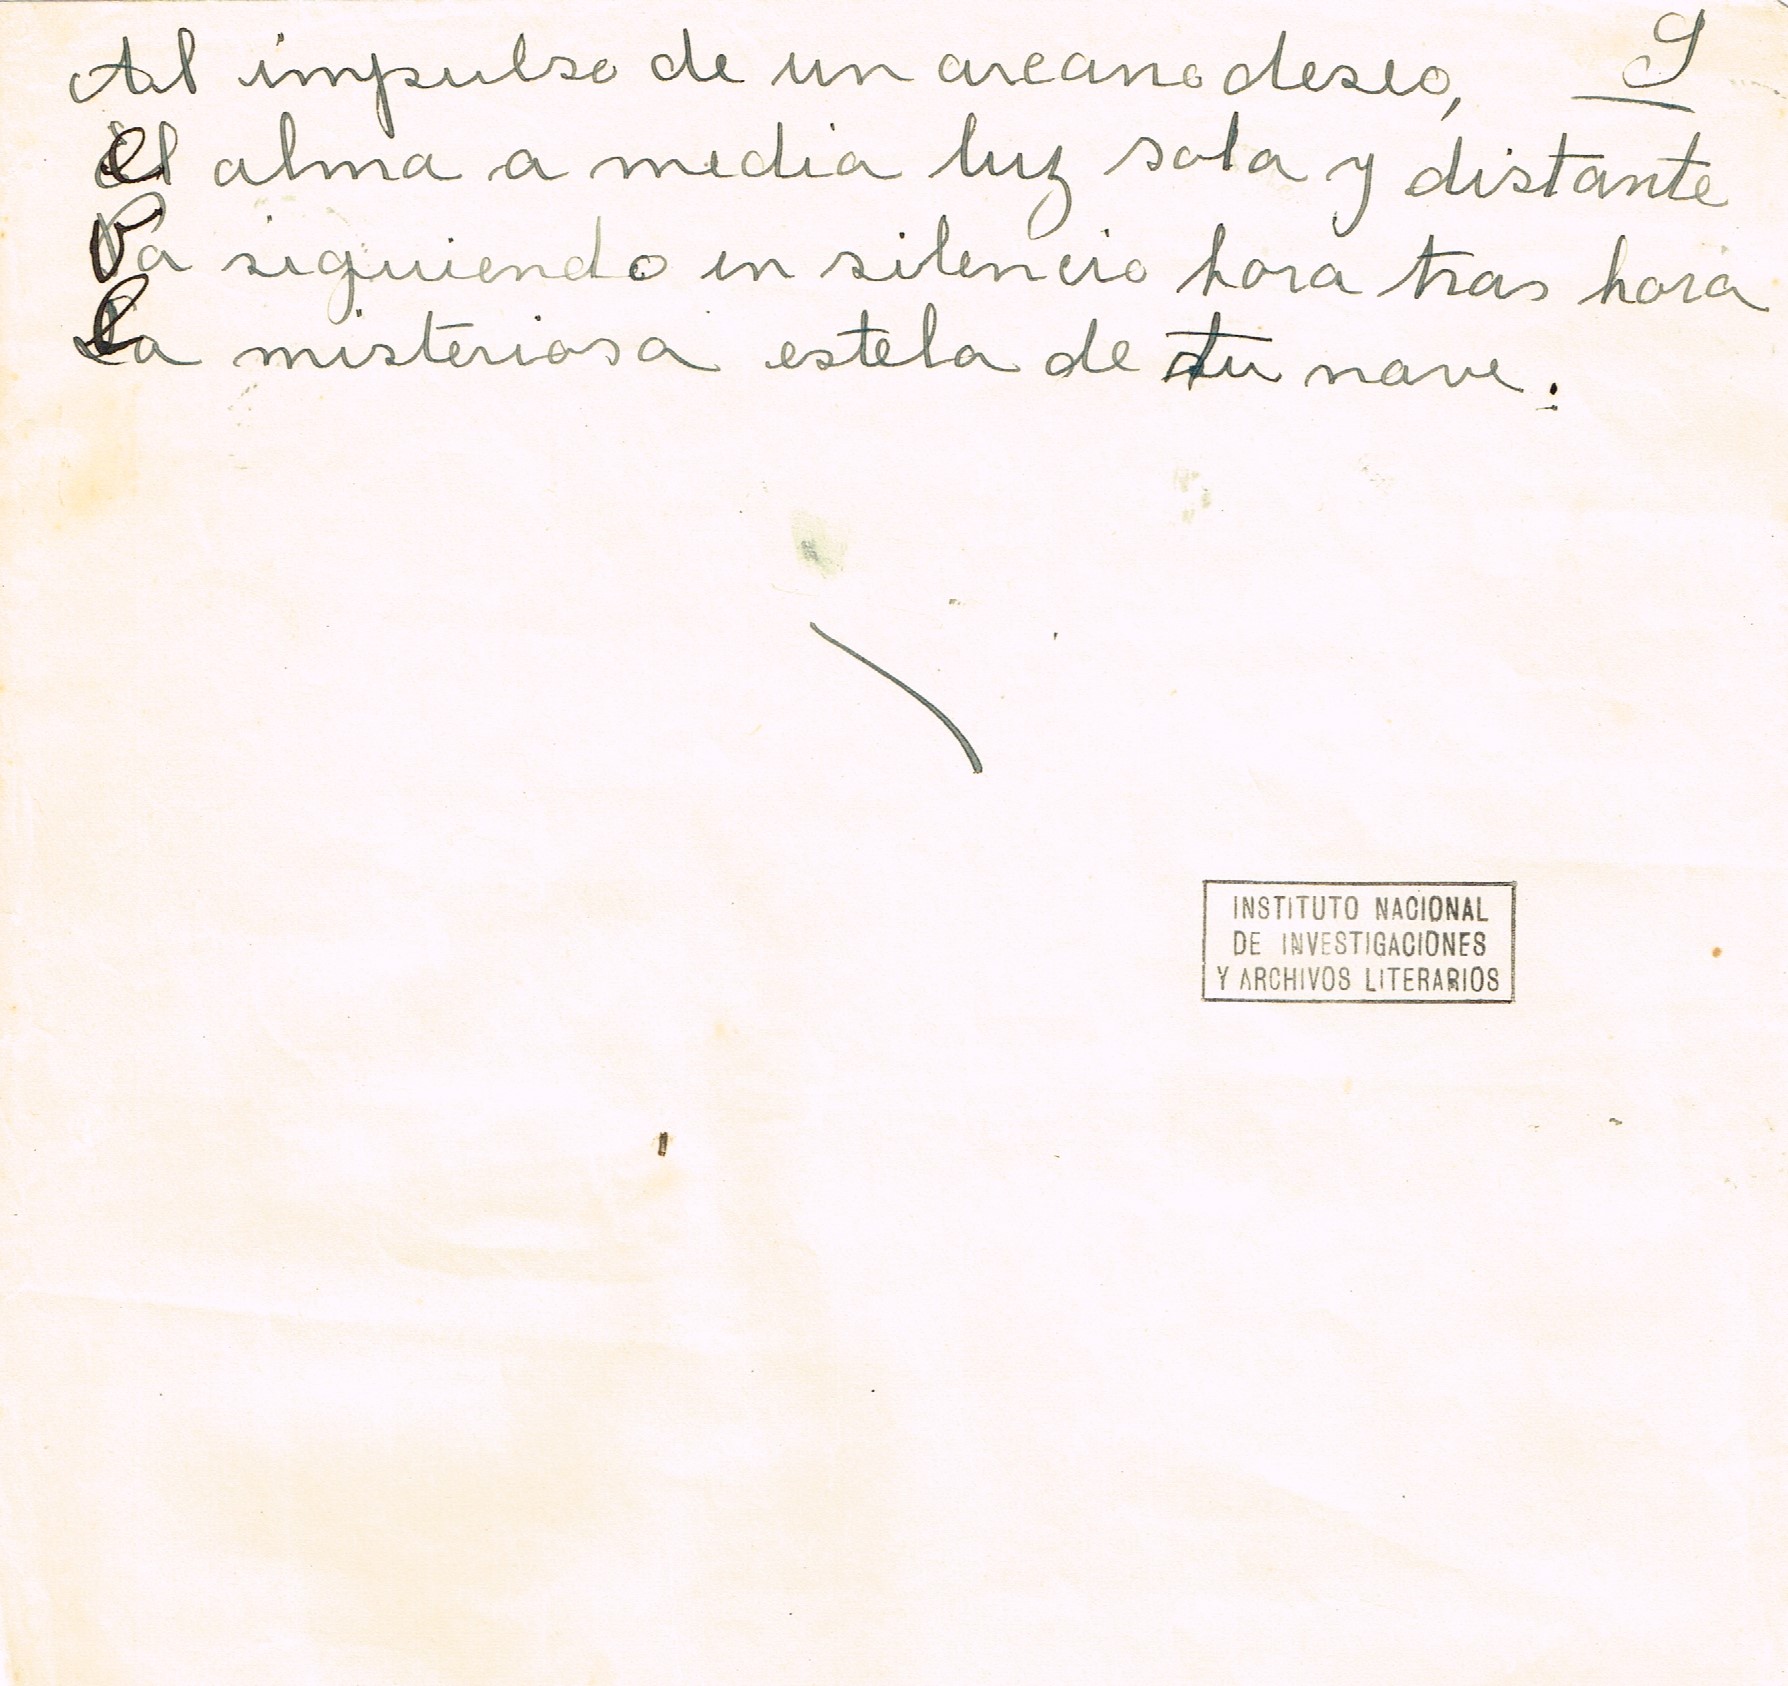 Al impulso de un arcano deseo,
9
el alma a media luz sola y distante
va siguiendo en silencio hora tras hora
la misteriosa estela de tu nave.
INSTITUTO NACIONAL
DE INVESTIGACIONES
Y ARCHIVOS LITERARIOS